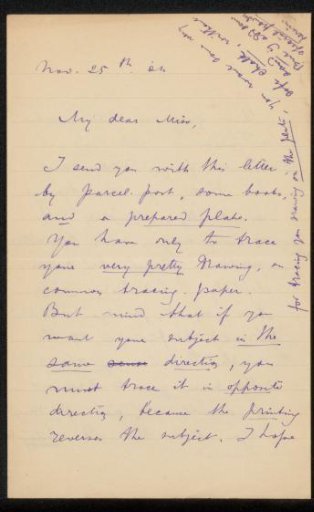 Nov. 25th. 04
My dear Miss,
I send you with this letter
by parcel-post, some books,
and a prepared plate.
You have only to trace
your very pretty drawing, on
common tracing-paper.
But mind that if you
want your subject in the
same sense direction, you
must trace it in opposite
direction, because the printing
reverses the subject. I hope
for tracing your drawing in the plate,
you